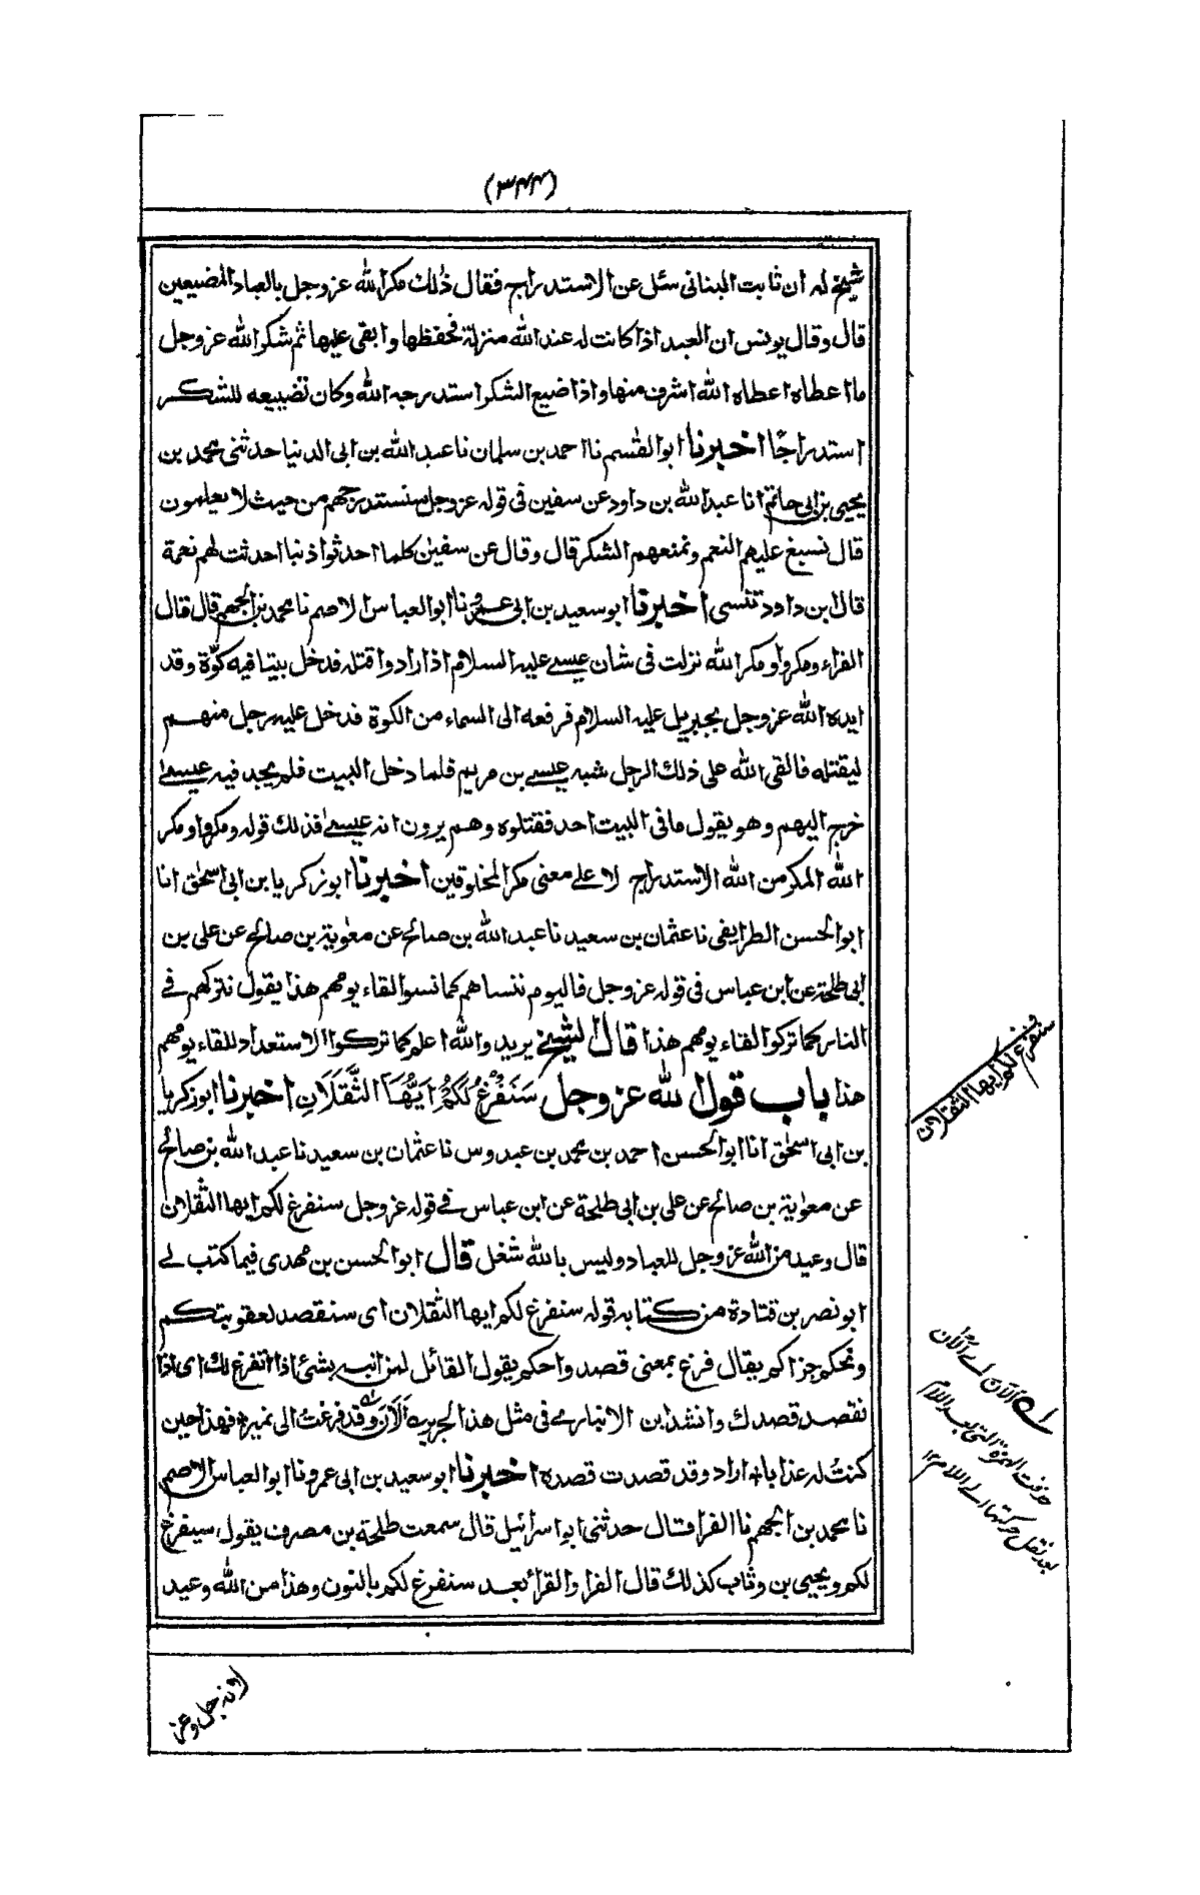 (٣٤٤)
شيخ له ان ثابت البنانى سئل عن الاستدراج فقال ذلك مكر الله عزوجل بالعباد المضيعين
قال وقال يونس ان العبد اذا كانت له عند الله منزلة فحفظها وابقى عليها ثم شكر الله عزوجل
ما اعطاه اعطاه الله اشرف منها واذا ضيع الشكر استدرجه الله وكان تضييعه للشكر
استدراجًا اخبرنا ابو القسم نا احمد بن سلمان نا عبد الله بن ابى الدنيا حدثنى محمد بن
يحيى بن ابى حاتم انا عبد الله بن داود عن سفين فى قوله عزوجل سنستدرجهم من حيث لا يعلمون
قال نسبغ عليهم النعم ونمنعهم الشكر قال وقال عن سفين كلما احدثوا ذنبا احدثت لهم نعمة
قال ابن داود تنسى اخبرنا ابو سعيد بن ابى عمرو نا ابو العباس الاصم نا محمد بن الجهم قال قال
الفراء ومكروا ومكر الله نزلت فى شان عيسى عليه السلام اذ ارادوا قتله فدخل بيتا فيه كوّة وقد
ايده الله عزوجل بجبريل عليه السلام فرفعه الى السماء من الكوة فدخل عليه رجل منهم
ليقتله فالقى الله على ذلك الرجل شبه عيسى بن مريم فلما دخل البيت فلم يجد فيه عيسى
خرج اليهم وهو يقول ما فى البيت احد فقتلوه وهم يرون انه عيسى فذلك قوله ومكروا ومكر
الله المكر من الله الاستدراج لا على معنى مكر المخلوقين اخبرنا ابو زكريا بن ابى اسحق انا
ابو الحسن الطرايفى نا عثمان بن سعيد نا عبد الله بن صالح عن معوية بن صالح عن على بن
ابى طلحة عن ابن عباس فى قوله عزوجل فاليوم ننساهم كما نسوا لقاء يومهم هذا يقول نتركهم فى
النار كما تركوا لقاء يومهم هذا قال الشيخ يريد والله اعلم كما تركوا الاستعداد للقاء يومهم
هذا باب قول الله عزوجل سَنَفْرُغُ لَكُمْ اَيُّهَا الثَّقَلَانِ اخبرنا ابو زكريا
بن ابى اسحق انا ابو الحسن احمد بن محمد بن عبدوس نا عثمان بن سعيد نا عبد الله بن صالح
عن معوية بن صالح عن على بن ابى طلحة عن ابن عباس فى قوله عزوجل سنفرغ لكم ايها الثقلان
قال وعيد من الله عزوجل للعباد وليس بالله شغل قال ابو الحسن بن مهدى فيما كتب لى
ابو نصر بن قتادة من كتابه قوله سنفرغ لكم ايها الثقلان اى سنقصد لعقوبتكم
ونحكم جزاكم يقال فرغ بمعنى قصد واحكم يقول القائل لمن انبه بشئ اذا اتفرغ لك اى اذا
نقصد قصدك وانشد ابن الانبارى فى مثل هذا لجرير الَان وقد فرغتُ الى نمير فهذا حين
كنتُ له عذابا اراد وقد قصدت قصده اخبرنا ابو سعيد بن ابى عمرو نا ابو العباس الاصم
نا محمد بن الجهم نا الفرا قال حدثنى ابو اسرائيل قال سمعت طلحة بن مصرف يقول سيفرغ
لكم ويحيى بن وثاب كذلك قال الفرا والقرا بعد سنفرغ لكم بالنون وهذا من الله وعيد
سنفرغ لكم ايها الثقلان
حذفت الهمزة التى بعد اللام
بعد نقل حركتها الى اللام ١٢
لانه جل وعز